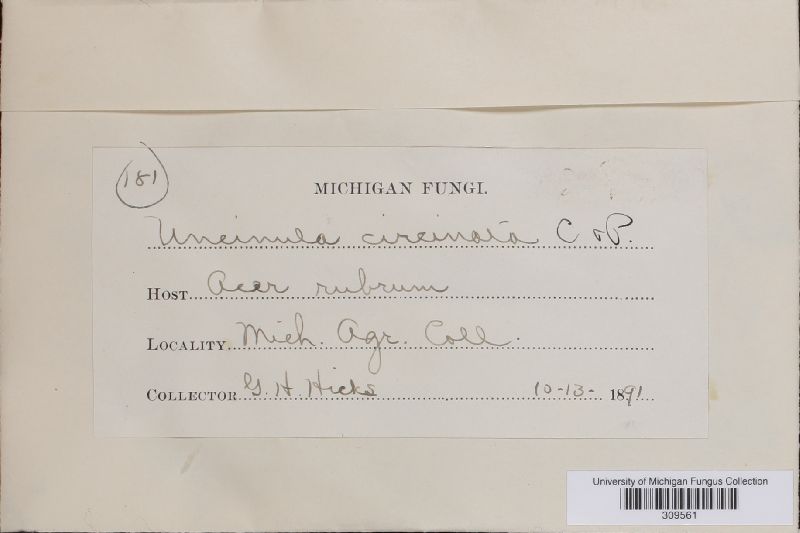 181
MICHIGAN FUNGI.
Uncinula circinata C & P.
HOST Acer rubrum
LOCALITY Mich. Agr. Coll.
COLLECTOR G. H. Hicks 10-13- 1891
University of Michigan Fungus Collection
309561